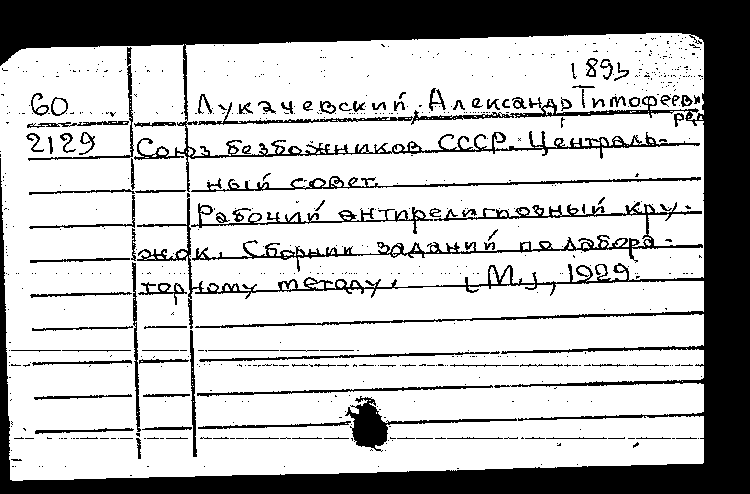 1893
60 Лукачевский, Александр Тимофеевич
ред
2129 Союз безбожников СССР. Централь-
ный совет.
Рабочий антирелигиозный кру-
жок. Сборник заданий по лабора-
торному методу. [М.], 1929.